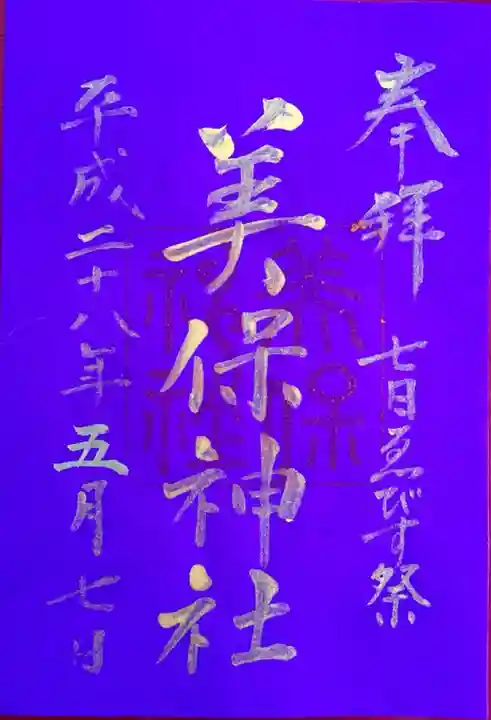 奉拝
七日ゑびす祭
美保神社
美保
神社
平成二十八年五月七日